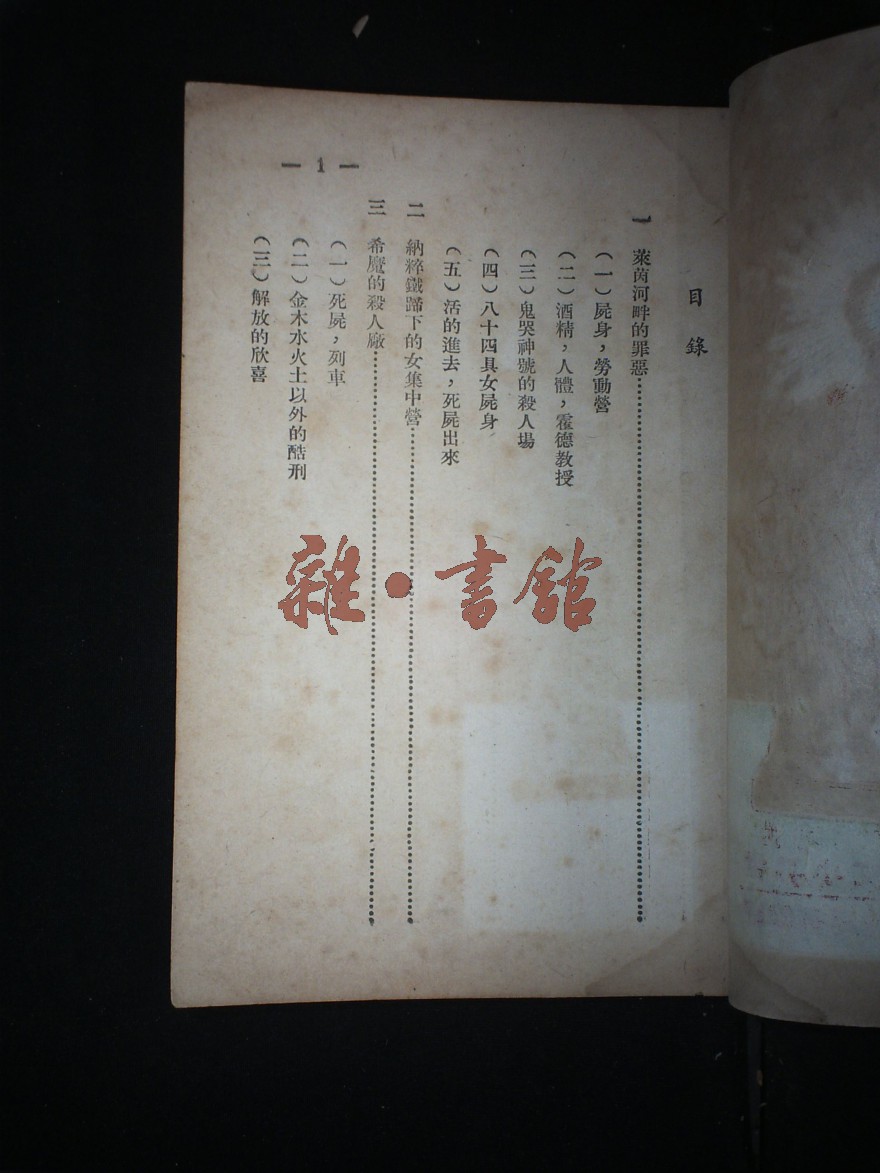 目錄
一 萊茵河畔的罪惡
(一)屍身,勞動營
(二)酒精,人體,霍德教授
(三)鬼哭神號的殺人場
(四)八十四具女屍身
(五)活的進去,死屍出來
二 納粹鐵蹄下的女集中營
三 希魔的殺人廠
(一)死屍,列車
(二)金木水火土以外的酷刑
(三)解放的欣喜
— 1 —
雜·書館